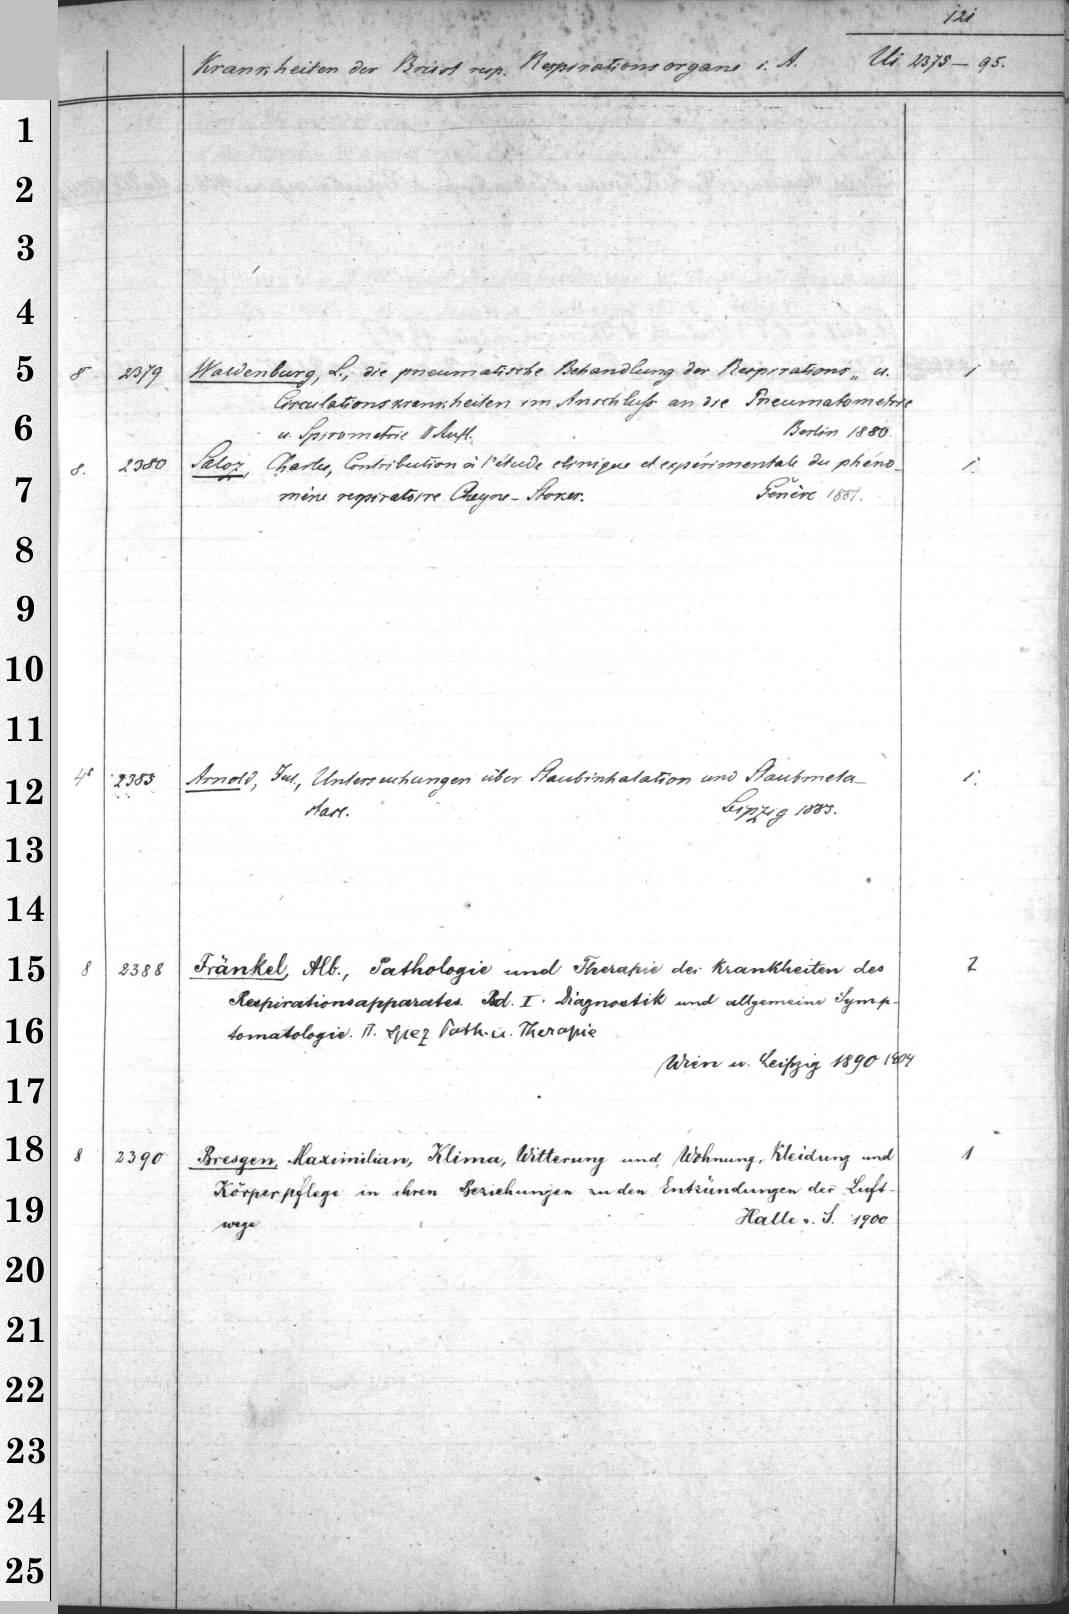 121
Krankheiten der Brust resp. Respirationsorgane i. A. Ui 2375 — 95.
1
2
3
4
5 8 2379 Waldenburg, L., die pneumatische Behandlung der Respirations„ u. 1
Circulationskrankheiten im Anschluß an die Pneumatometrie
6 u. Spirometrie II Aufl. Berlin 1880.
8. 2380 Saloz, Charles, Contribution à l'étude clinique et expérimentale du phéno- 1.
7 mène respiratoire Cheyne-Stokes. Genève 1881.
8
9
10
11
12 4° 2383 Arnold, Jul., Untersuchungen über Staubinhalation und Staubmeta- 1.
stase. Leipzig 1885.
13
14
15 8 2388 Fränkel, Alb., Pathologie und Therapie der Krankheiten des 2
Respirationsapparates. Bd. I. Diagnostik und allgemeine Symp-
16 tomatologie. II. Spez Path. u. Therapie
Wien u. Leipzig 1890 1904
17
18 8 2390 Bresgen, Maximilian, Klima, Witterung und Wohnung, Kleidung und 1
Körperpflege in ihren Beziehungen zu den Entzündungen der Luft-
19 wege Halle a. S. 1900
20
21
22
23
24
25